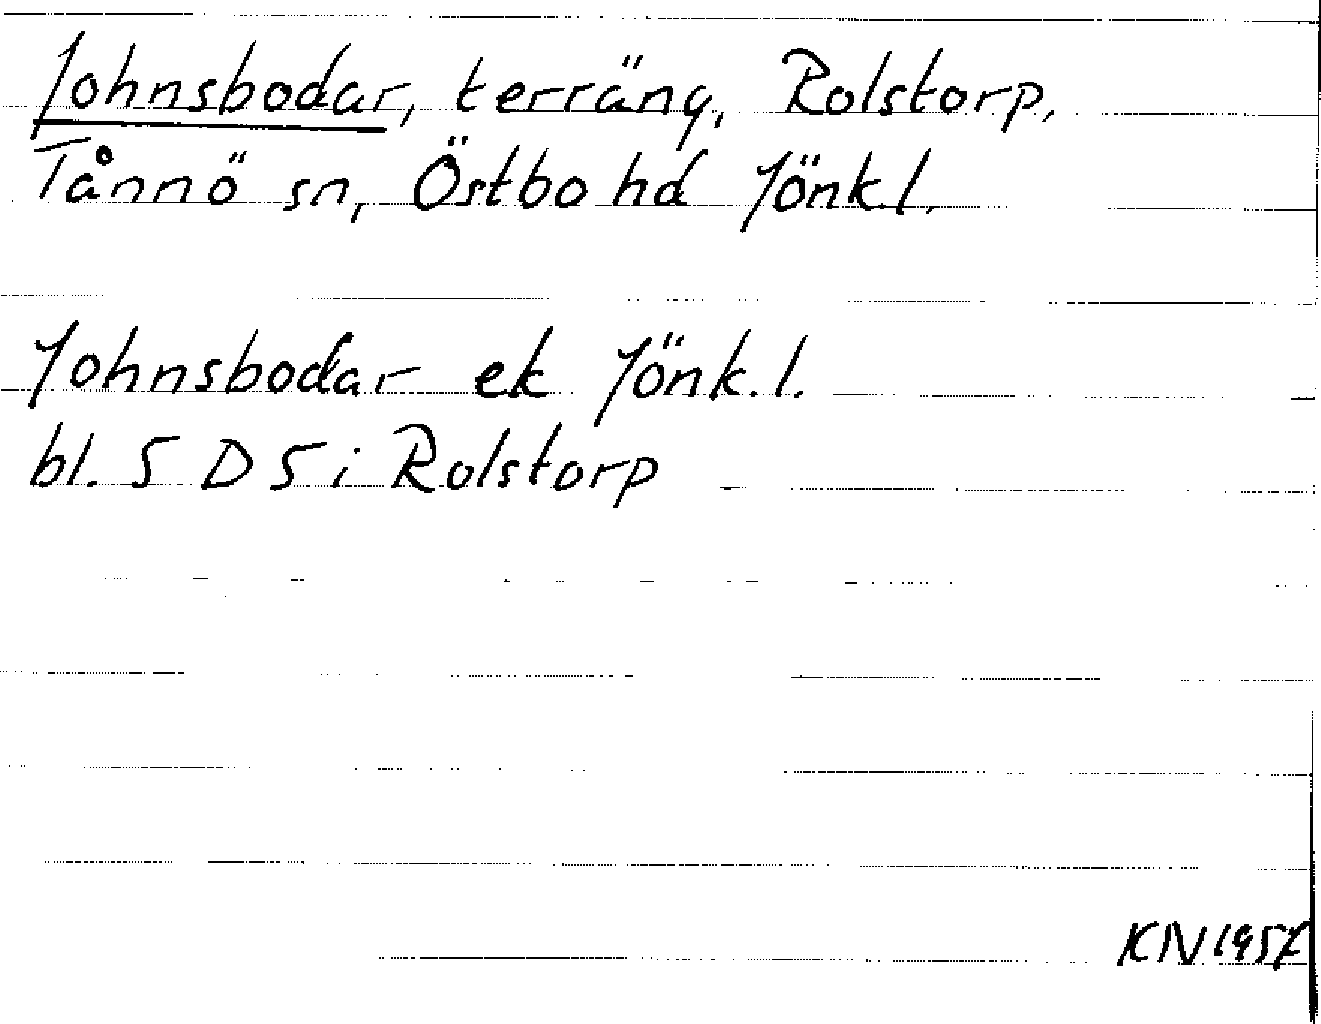 Johnsbodar, terräng, Rolstorp,
Tånnö sn, Östbo hd Jönk.l.
Johnsbodar ek Jönk.l.
bl. 5 D 5 i Rolstorp
KN 1957